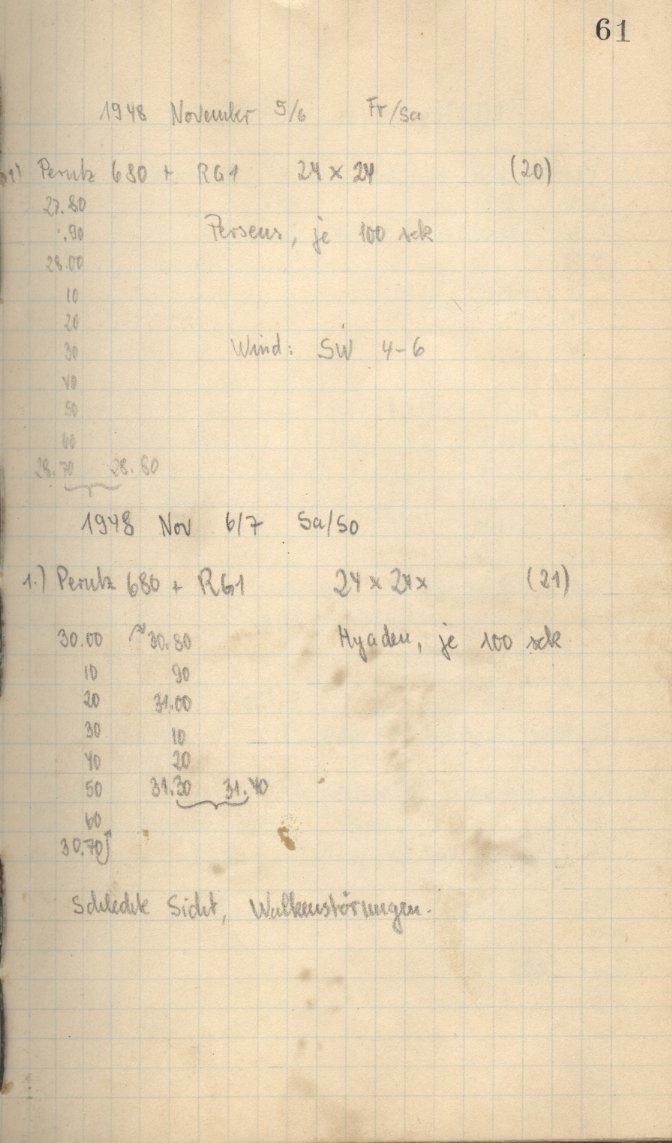 61
1948 November 5/6 Fr/Sa
1) Perutz 680 + RG1 24 x 24 (20)
27.80
.90 Perseus, je 100 sek
28.00
10
20
30 Wind: SW 4-6
40
50
60
28.70 28.80
1948 Nov 6/7 Sa/So
1.) Perutz 680 + RG1 24 x 24 x (21)
30.00 30.80 Hyaden, je 100 sek
10 90
20 31.00
30 10
40 20
50 31.30 31.40
60
30.70
Schlechte Sicht, Wolkenstörungen.